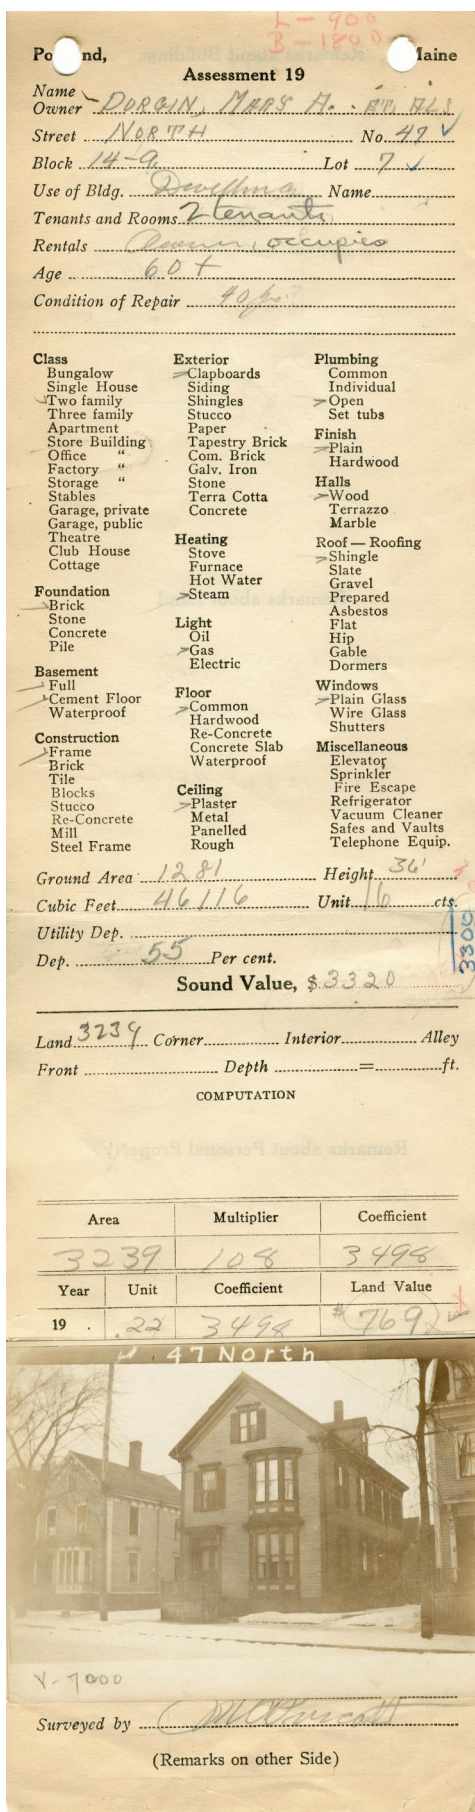 L - 900
B - 1800
Po nd, Maine
Assessment 19
Name
Owner DURGIN, MARY A. ET. ALS
Street NORTH No. 47 ✓
Block 14-9 Lot 7 ✓
Use of Bldg. Dwelling Name
Tenants and Rooms 2 tenants
Rentals Owner, occupies
Age 60+
Condition of Repair
Class
Bungalow
Single House
Two family
Three family
Apartment
Store Building
Office “
Factory “
Storage “
Stables
Garage, private
Garage, public
Theatre
Club House
Cottage
Foundation
Brick
Stone
Concrete
Pile
Basement
Full
Cement Floor
Waterproof
Construction
Frame
Brick
Tile
Blocks
Stucco
Re-Concrete
Mill
Steel Frame
Exterior
Clapboards
Siding
Shingles
Stucco
Paper
Tapestry Brick
Com. Brick
Galv. Iron
Stone
Terra Cotta
Concrete
Heating
Stove
Furnace
Hot Water
Steam
Light
Oil
Gas
Electric
Floor
Common
Hardwood
Re-Concrete
Concrete Slab
Waterproof
Ceiling
Plaster
Metal
Panelled
Rough
Plumbing
Common
Individual
Open
Set tubs
Finish
Plain
Hardwood
Halls
Wood
Terrazzo
Marble
Roof — Roofing
Shingle
Slate
Gravel
Prepared
Asbestos
Flat
Hip
Gable
Dormers
Windows
Plain Glass
Wire Glass
Shutters
Miscellaneous
Elevator
Sprinkler
Fire Escape
Refrigerator
Vacuum Cleaner
Safes and Vaults
Telephone Equip.
Ground Area 1281 Height 36'
Cubic Feet 46116 Unit 16 cts.
Utility Dep.
3300
Dep. 55 Per cent.
Sound Value, $ 3320
Land 3239 Corner Interior Alley
Front Depth = ft.
COMPUTATION
Area Multiplier Coefficient
3239 108 3498
Year Unit Coefficient Land Value
19 . .22 3498 $ 769
47 North
Y-7000
Surveyed by
(Remarks on other Side)